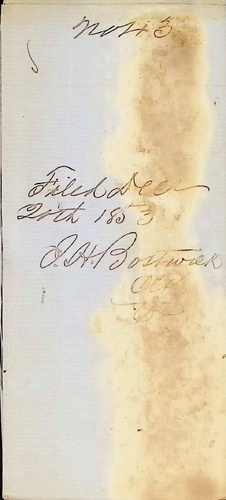 No 43
Filed Decr
20th 1853
J. H. Bostwick
Clk